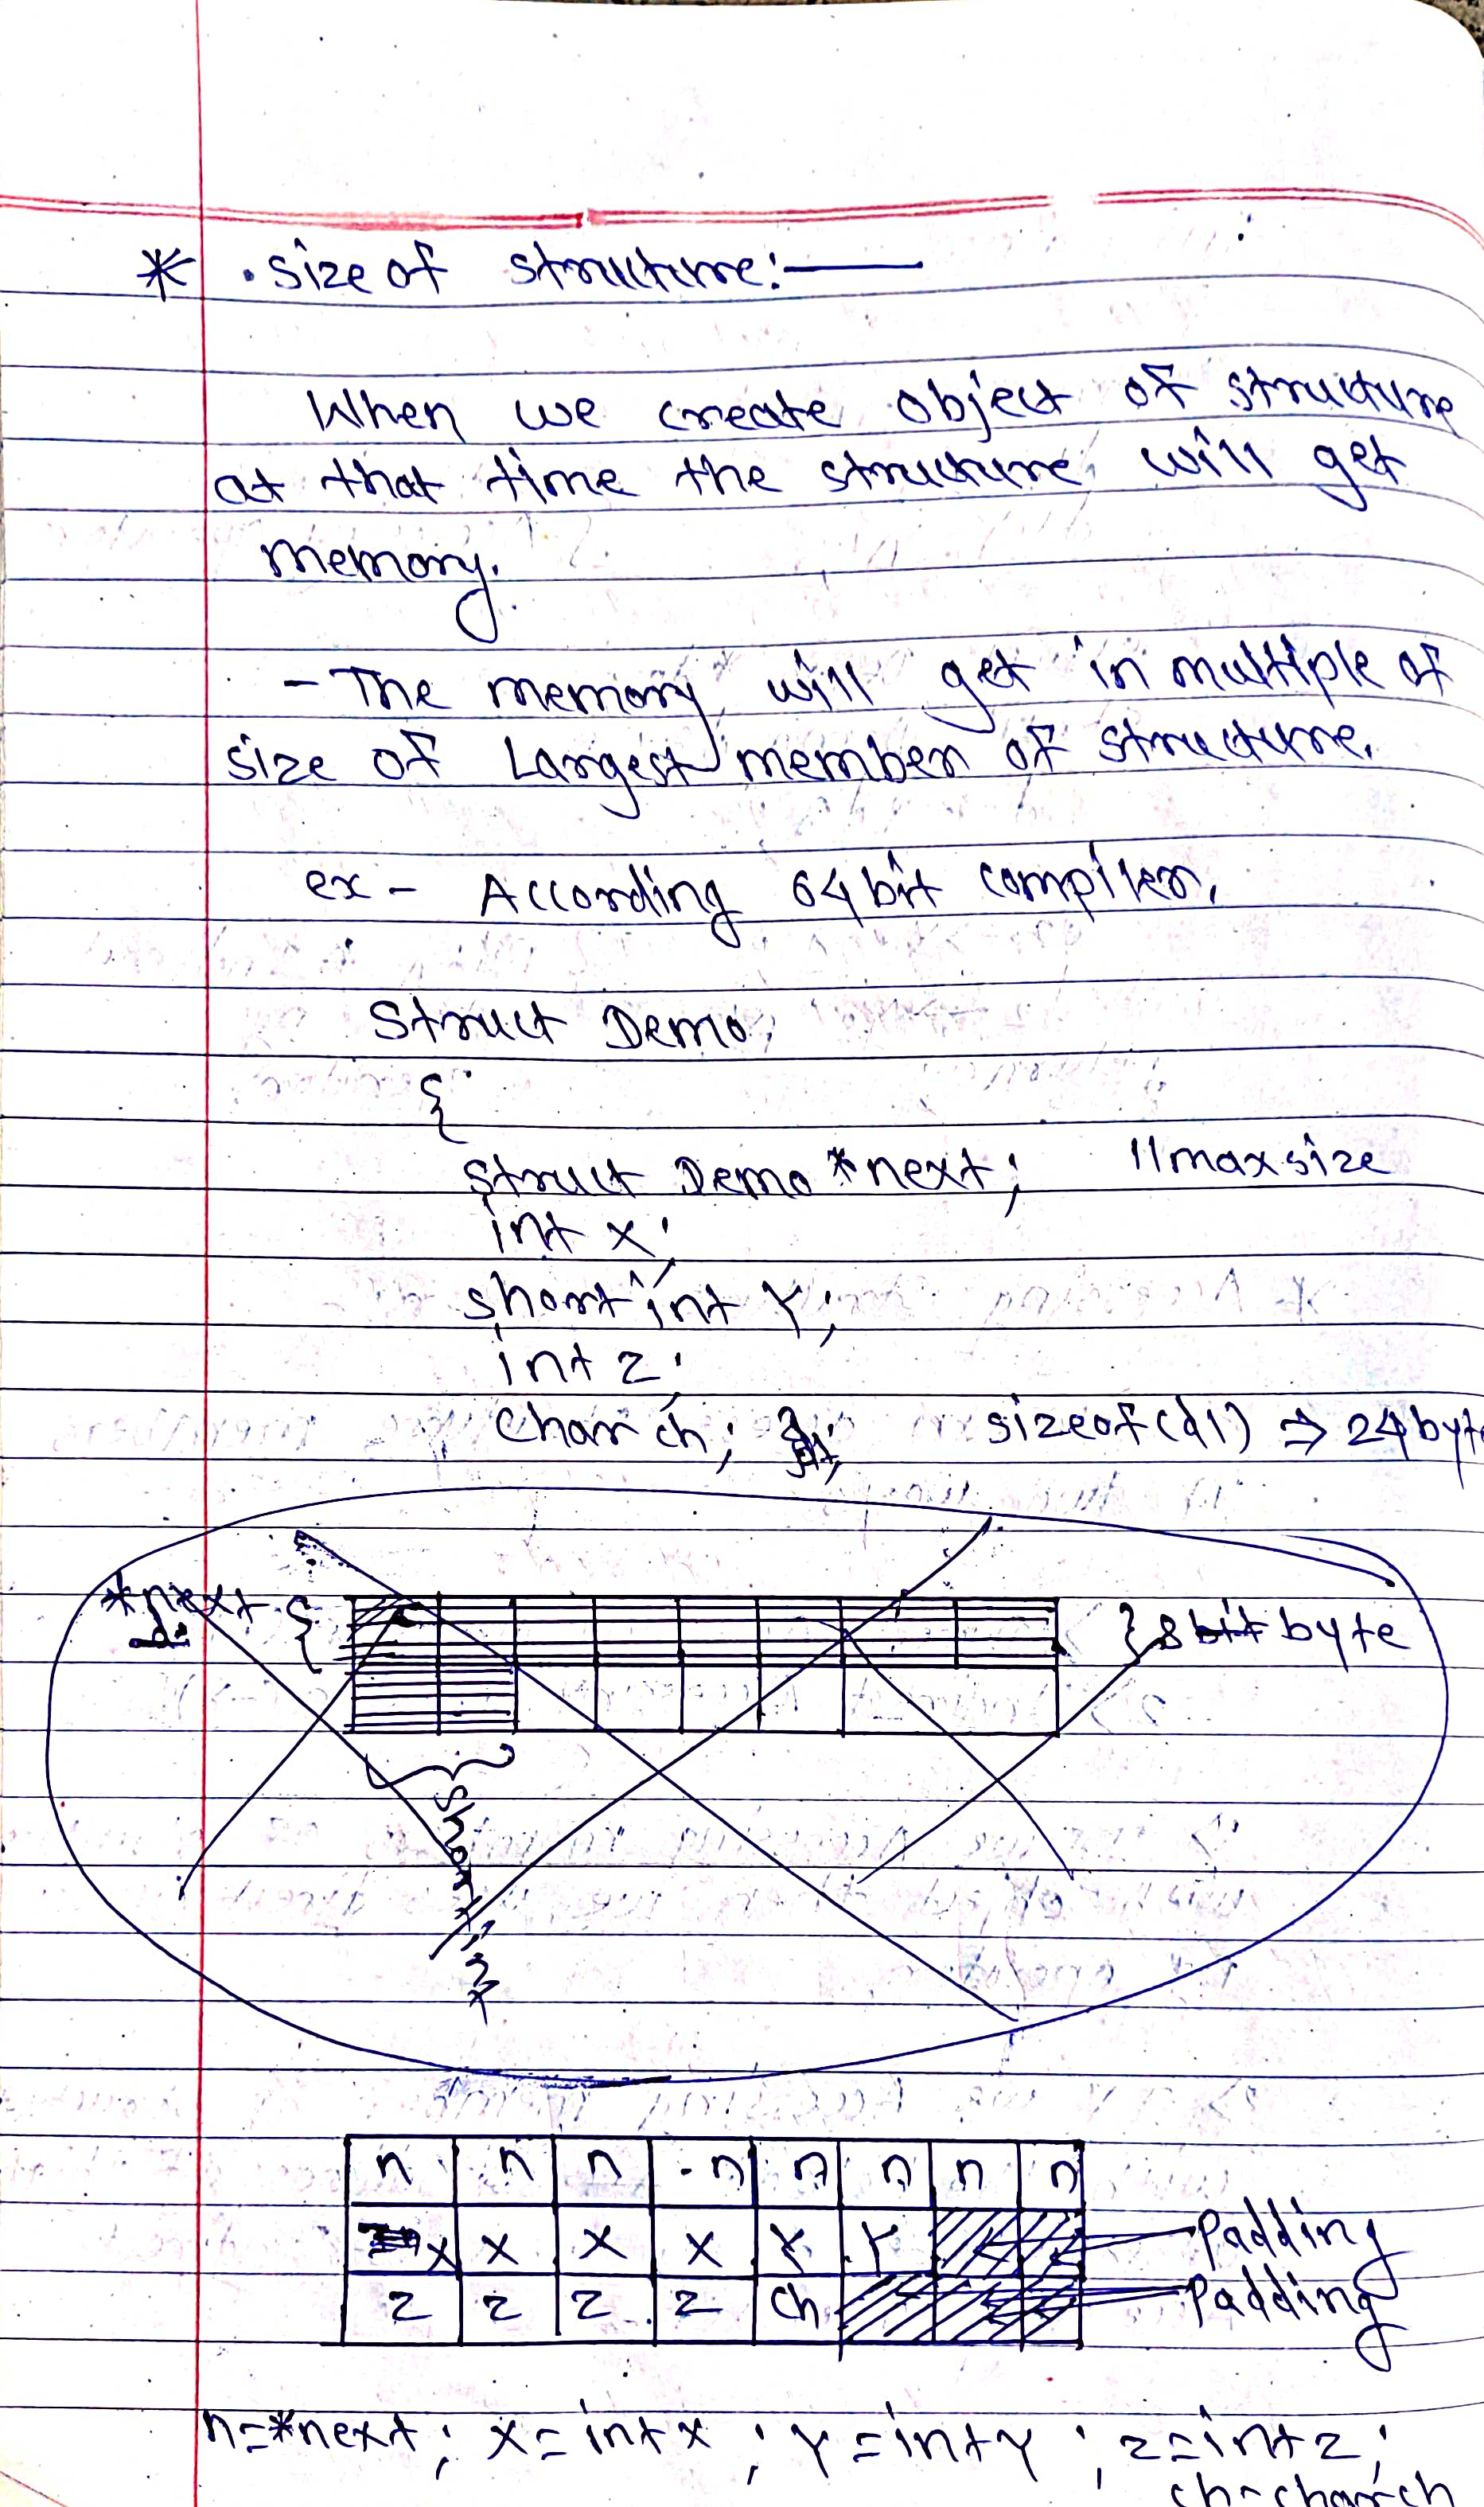 * . size of structure:—
When we create object of structure
at that time the structure will get
memory.
- The memory will get in multiple of
size of Largest member of structure.
ex - According 64 bit compiler.
Struct Demo
{
struct Demo *next; //max size
int x;
short int Y;
int z;
char ch; }; sizeof(d1) ⇒ 24 byte
*next { } 8 bit byte
short
n n n n n n n n
x x x x Y Y Padding
z z z z ch Padding
n=*next; x=int x ; Y=int Y ; z=int z;
ch=char ch